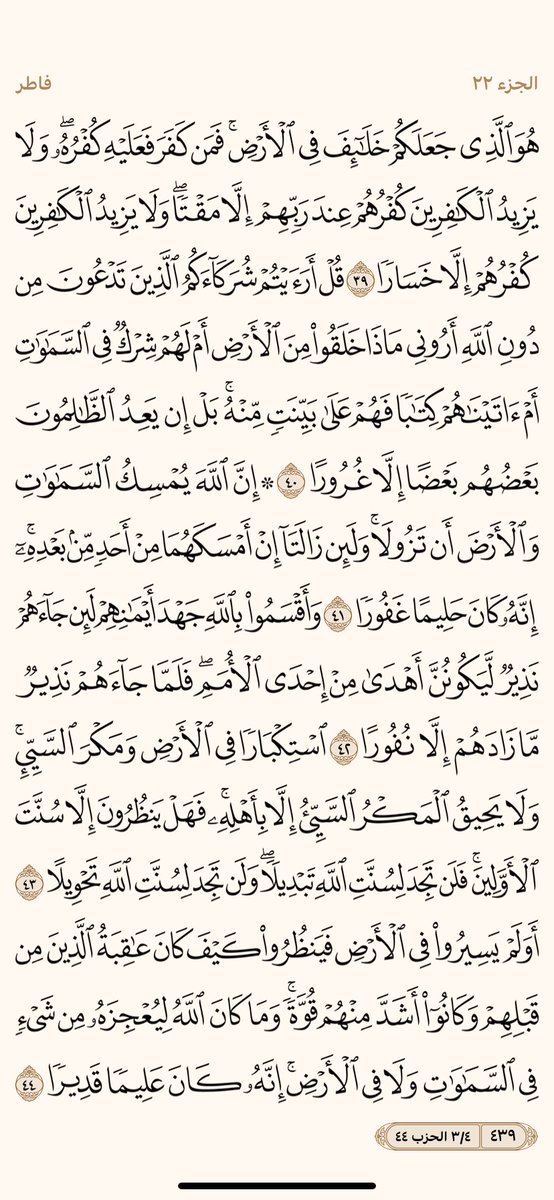 الجزء ٢٢
فاطر
هُوَ ٱلَّذِى جَعَلَكُمْ خَلَـٰٓئِفَ فِى ٱلْأَرْضِ ۚ فَمَن كَفَرَ فَعَلَيْهِ كُفْرُهُۥ ۖ وَلَا
يَزِيدُ ٱلْكَـٰفِرِينَ كُفْرُهُمْ عِندَ رَبِّهِمْ إِلَّا مَقْتًا ۖ وَلَا يَزِيدُ ٱلْكَـٰفِرِينَ
كُفْرُهُمْ إِلَّا خَسَارًا ٣٩ قُلْ أَرَءَيْتُمْ شُرَكَآءَكُمُ ٱلَّذِينَ تَدْعُونَ مِن
دُونِ ٱللَّهِ أَرُونِى مَاذَا خَلَقُوا۟ مِنَ ٱلْأَرْضِ أَمْ لَهُمْ شِرْكٌ فِى ٱلسَّمَـٰوَٰتِ
أَمْ ءَاتَيْنَـٰهُمْ كِتَـٰبًا فَهُمْ عَلَىٰ بَيِّنَتٍ مِّنْهُ ۚ بَلْ إِن يَعِدُ ٱلظَّـٰلِمُونَ
بَعْضُهُم بَعْضًا إِلَّا غُرُورًا ٤٠ ۞ إِنَّ ٱللَّهَ يُمْسِكُ ٱلسَّمَـٰوَٰتِ
وَٱلْأَرْضَ أَن تَزُولَا ۚ وَلَئِن زَالَتَآ إِنْ أَمْسَكَهُمَا مِنْ أَحَدٍ مِّنۢ بَعْدِهِۦٓ ۚ
إِنَّهُۥ كَانَ حَلِيمًا غَفُورًا ٤١ وَأَقْسَمُوا۟ بِٱللَّهِ جَهْدَ أَيْمَـٰنِهِمْ لَئِن جَآءَهُمْ
نَذِيرٌ لَّيَكُونُنَّ أَهْدَىٰ مِنْ إِحْدَى ٱلْأُمَمِ ۖ فَلَمَّا جَآءَهُمْ نَذِيرٌ
مَّا زَادَهُمْ إِلَّا نُفُورًا ٤٢ ٱسْتِكْبَارًا فِى ٱلْأَرْضِ وَمَكْرَ ٱلسَّيِّئِ ۚ
وَلَا يَحِيقُ ٱلْمَكْرُ ٱلسَّيِّئُ إِلَّا بِأَهْلِهِۦ ۚ فَهَلْ يَنظُرُونَ إِلَّا سُنَّتَ
ٱلْأَوَّلِينَ ۚ فَلَن تَجِدَ لِسُنَّتِ ٱللَّهِ تَبْدِيلًا ۖ وَلَن تَجِدَ لِسُنَّتِ ٱللَّهِ تَحْوِيلًا ٤٣
أَوَلَمْ يَسِيرُوا۟ فِى ٱلْأَرْضِ فَيَنظُرُوا۟ كَيْفَ كَانَ عَـٰقِبَةُ ٱلَّذِينَ مِن
قَبْلِهِمْ وَكَانُوٓا۟ أَشَدَّ مِنْهُمْ قُوَّةً ۚ وَمَا كَانَ ٱللَّهُ لِيُعْجِزَهُۥ مِن شَىْءٍ
فِى ٱلسَّمَـٰوَٰتِ وَلَا فِى ٱلْأَرْضِ ۚ إِنَّهُۥ كَانَ عَلِيمًا قَدِيرًا ٤٤
٤٣٩
٣/٤ الحزب ٤٤